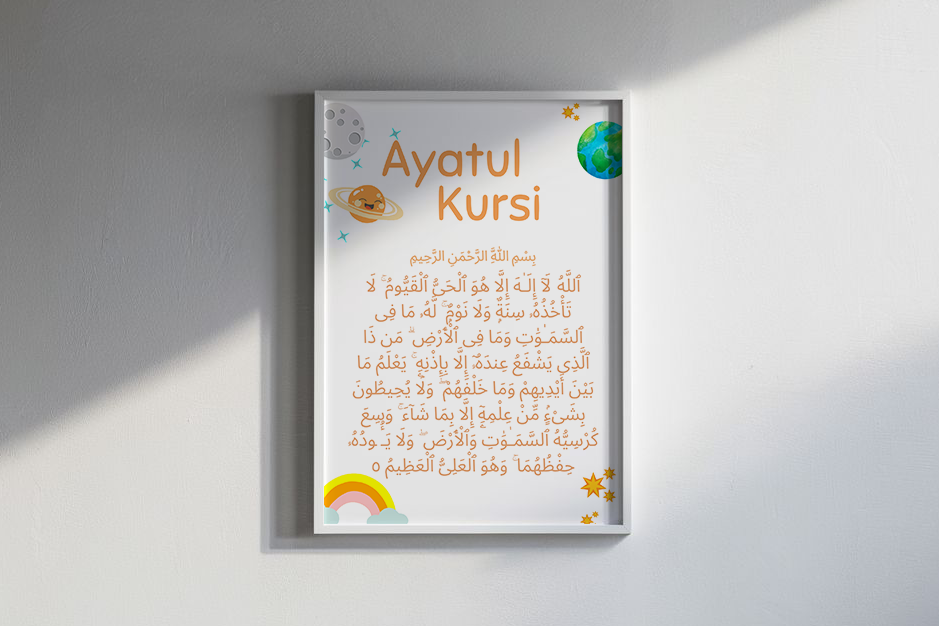 Ayatul
Kursi
بِسْمِ اللَّهِ الرَّحْمَنِ الرَّحِيمِ
ٱللَّهُ لَآ إِلَـٰهَ إِلَّا هُوَ ٱلْحَىُّ ٱلْقَيُّومُ ۚ لَا
تَأْخُذُهُۥ سِنَةٌ وَلَا نَوْمٌ ۚ لَّهُۥ مَا فِى
ٱلسَّمَـٰوَٰتِ وَمَا فِى ٱلْأَرْضِ ۗ مَن ذَا
ٱلَّذِى يَشْفَعُ عِندَهُۥٓ إِلَّا بِإِذْنِهِۦ ۚ يَعْلَمُ مَا
بَيْنَ أَيْدِيهِمْ وَمَا خَلْفَهُمْ ۖ وَلَا يُحِيطُونَ
بِشَىْءٍ مِّنْ عِلْمِهِۦٓ إِلَّا بِمَا شَآءَ ۚ وَسِعَ
كُرْسِيُّهُ ٱلسَّمَـٰوَٰتِ وَٱلْأَرْضَ ۖ وَلَا يَـُٔودُهُۥ
حِفْظُهُمَا ۚ وَهُوَ ٱلْعَلِىُّ ٱلْعَظِيمُ ٥